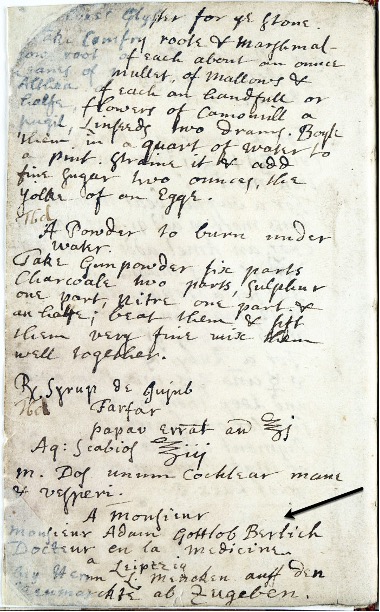 Glyster for ye stone.
Take Comfry roote & Marshmal-
low root of each about an ounce
leaves of mullet, of Mallows &
Althea of each an handfull or
halfe, flowers of Camomill a
pugil, Linseeds two drams. Boyle
them in a quart of water to
a pint. straine it & add
fine sugar two ounces, the
yolke of an Egge.
A Powder to burn under
water.
Take Gunpowder six parts
Charcoale two parts, Sulphur
one part, Nitre one part &
an halfe; beat them & sift
them very fine mix them
well together.
℞ Syrup de Jujub
Farfar
papav errat an ℥j
Aq: Scabios ℥iij
m. Dos unum Cochlear mane
& vesperi.
A Monsieur
Monsieur Adam Gottlob Berlich
Docteur en la Medicine
a Leipzig
bey Herrn L. Mencken auff den
Neumarckte ab Zugeben.